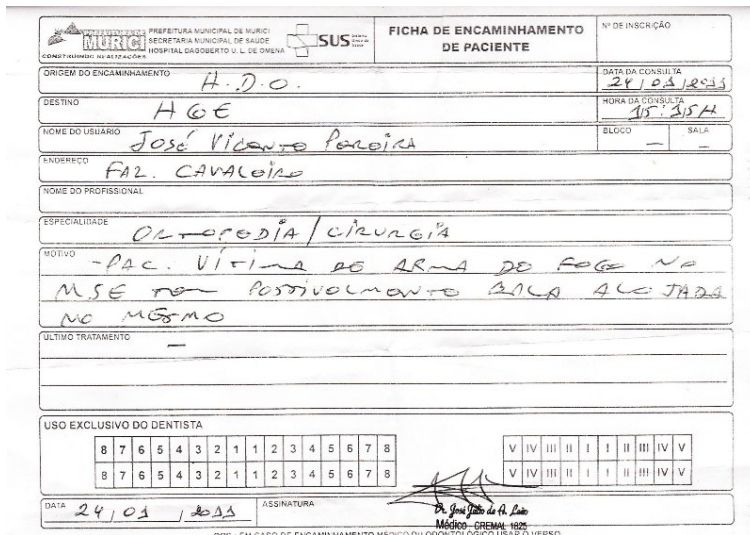 PREFEITURA DE
MURICI
CONSTRUINDO REALIZAÇÕES
PREFEITURA MUNICIPAL DE MURICI
SECRETARIA MUNICIPAL DE SAÚDE
HOSPITAL DAGOBERTO U. L. DE OMENA
SUS Sistema Único de Saúde
FICHA DE ENCAMINHAMENTO
DE PACIENTE
Nº DE INSCRIÇÃO
ORIGEM DO ENCAMINHAMENTO
H.D.O.
DATA DA CONSULTA
24/01/2011
DESTINO
HGE
HORA DA CONSULTA
15:15H
NOME DO USUÁRIO
José Vicente Pereira
BLOCO
—
SALA
—
ENDEREÇO
FAZ. CAVALEIRO
NOME DO PROFISSIONAL
ESPECIALIDADE
ORTOPEDIA/CIRURGIA
MOTIVO
-PAC. VÍTIMA DE ARMA DE FOGO NO
MSE POSSIVELMENTE BALA ALOJADA
NO MESMO
ULTIMO TRATAMENTO
—
USO EXCLUSIVO DO DENTISTA
8 7 6 5 4 3 2 1 1 2 3 4 5 6 7 8
V IV III II I I II III IV V
8 7 6 5 4 3 2 1 1 2 3 4 5 6 7 8
V IV III II I I II III IV V
DATA
24/01/2011
ASSINATURA
Dr. José Júlio de A. Leão
Médico CREMAL 1825
OBS.: EM CASO DE ENCAMINHAMENTO MÉDICO OU ODONTOLÓGICO USAR O VERSO